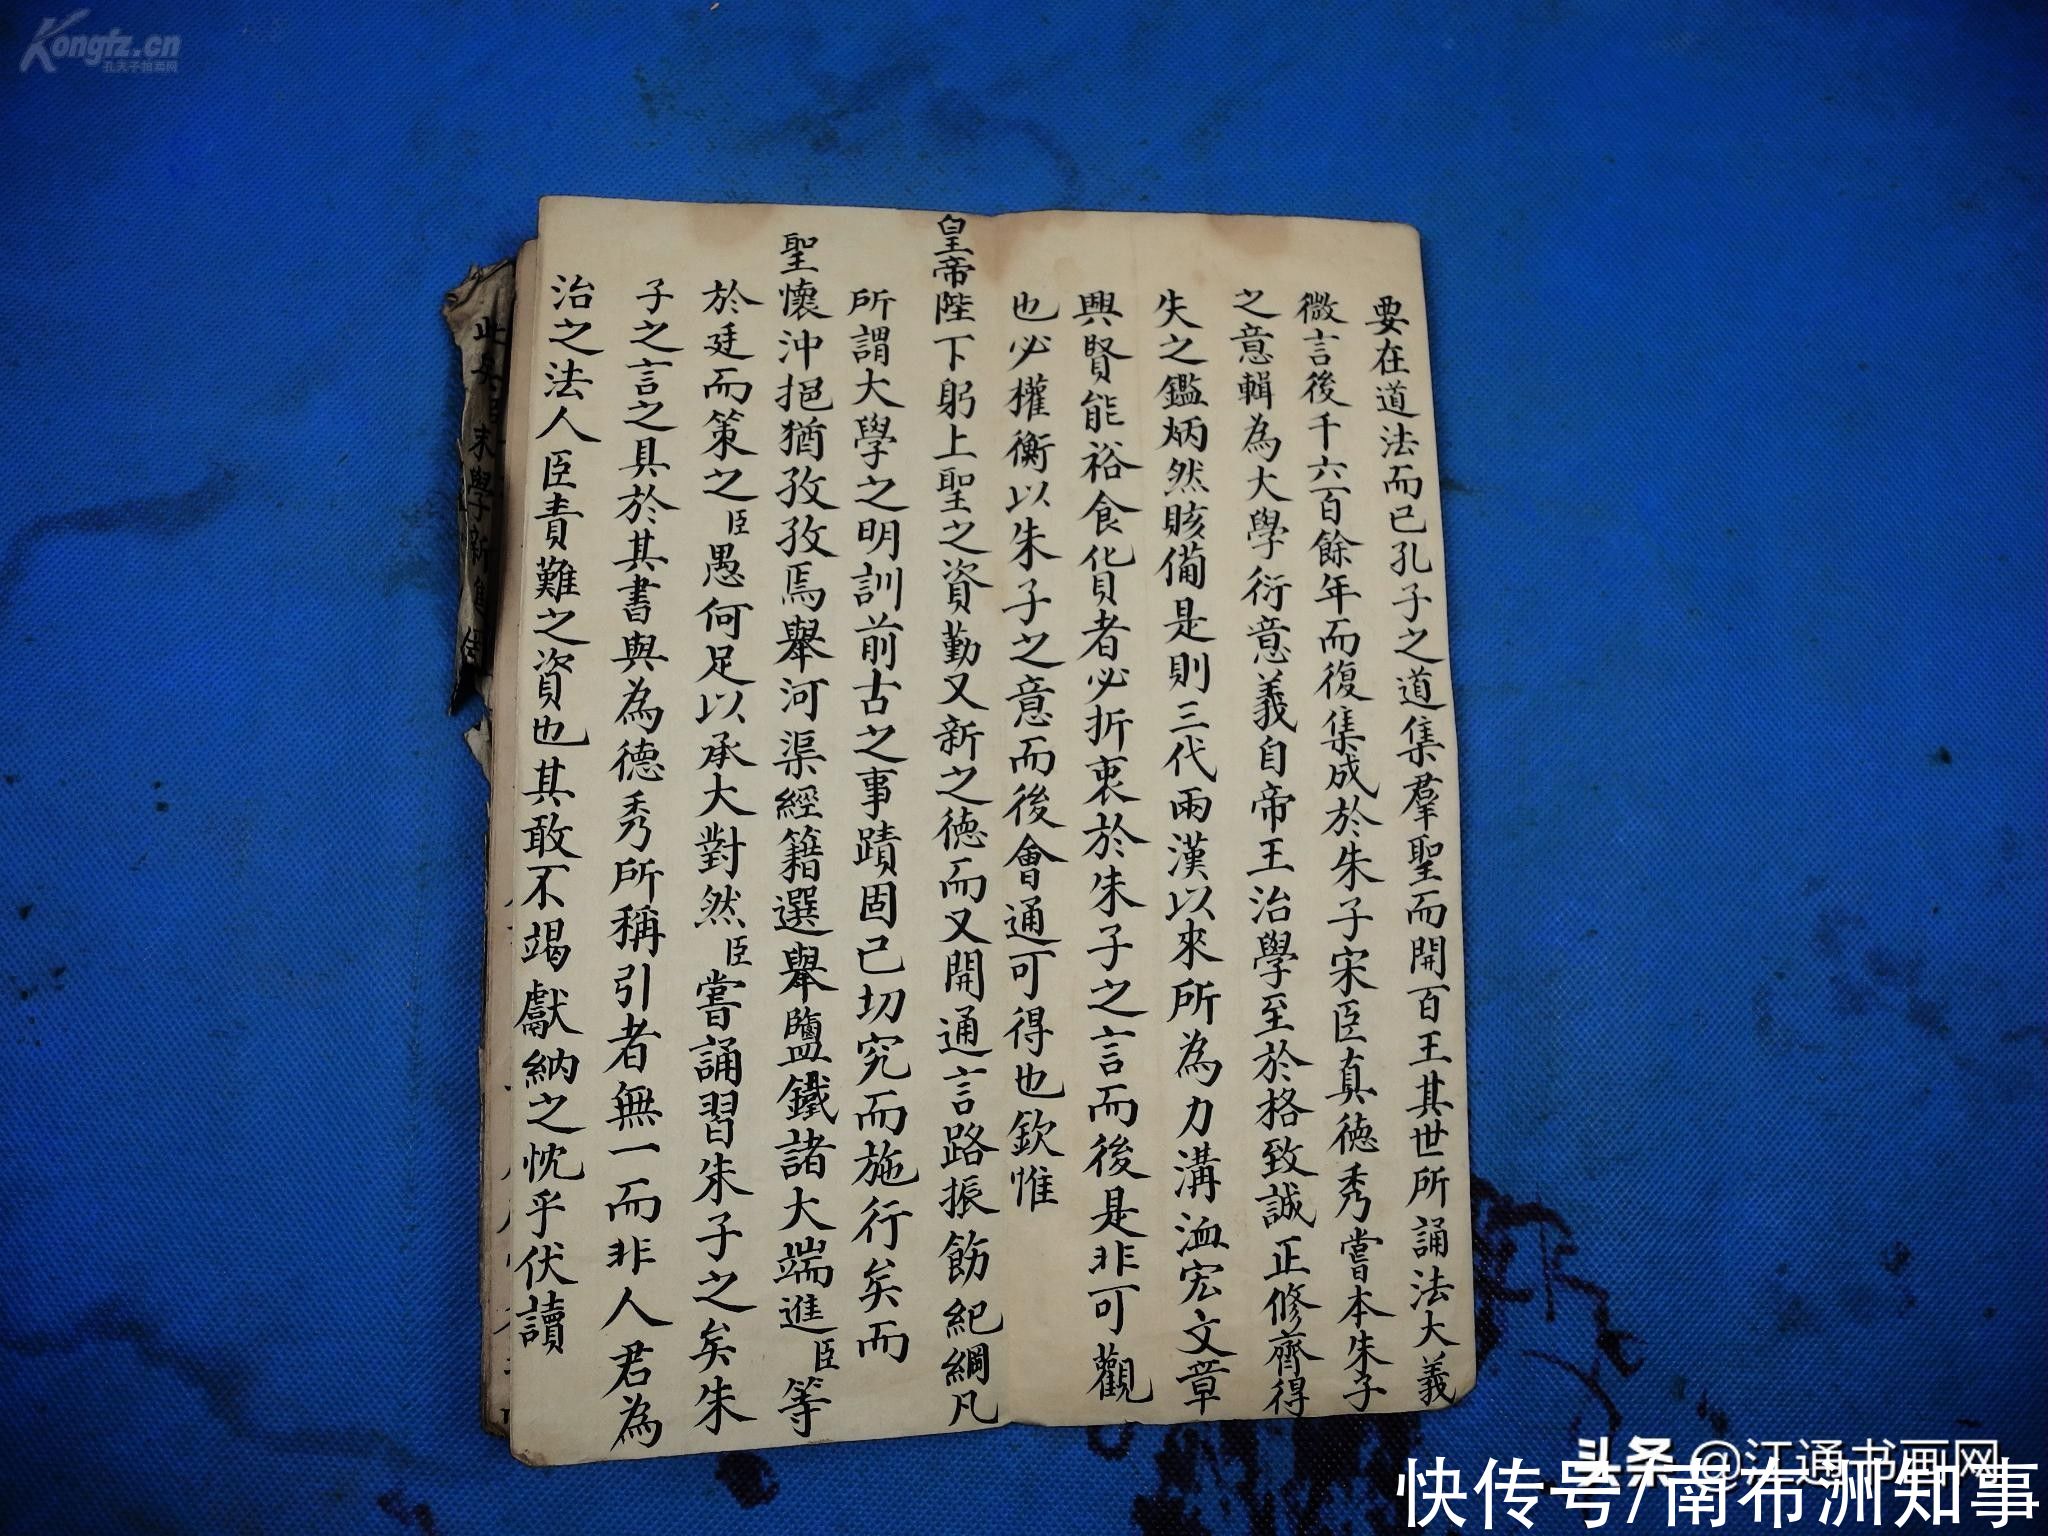 要在道法而已孔子之道集羣聖而開百王其世所誦法大義
微言後千六百餘年而復集成於朱子宋臣真德秀嘗本朱子
之意輯為大學衍意義自帝王治學至於格致誠正修齊得
失之鑑炳然賅備是則三代兩漢以來所為力溝洫宏文章
興賢能裕食化貨者必折衷於朱子之言而後是非可觀
也必權衡以朱子之意而後會通可得也欽惟
皇帝陛下躬上聖之資勤又新之德而又開通言路振飭紀綱凡
所謂大學之明訓前古之事蹟固已切究而施行矣而
聖懷沖挹猶孜孜焉舉河渠經籍選舉鹽鐵諸大端進臣等
於廷而策之臣愚何足以承大對然臣嘗誦習朱子之矣朱
子之言之具於其書與為德秀所稱引者無一而非人君為
治之法人臣責難之資也其敢不竭獻納之忱乎伏讀
末學新進
Kongfz.cn
孔夫子拍卖网
头条@江通书画网
快传号/南布洲知事